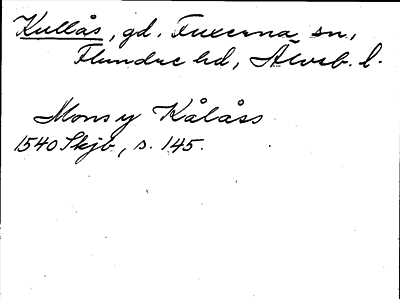 Kullås, gd. Fuxerna sn.,
Flundre hd, Älvsb. l.
Mons y Kålåss
1540 Skjb., s. 145.